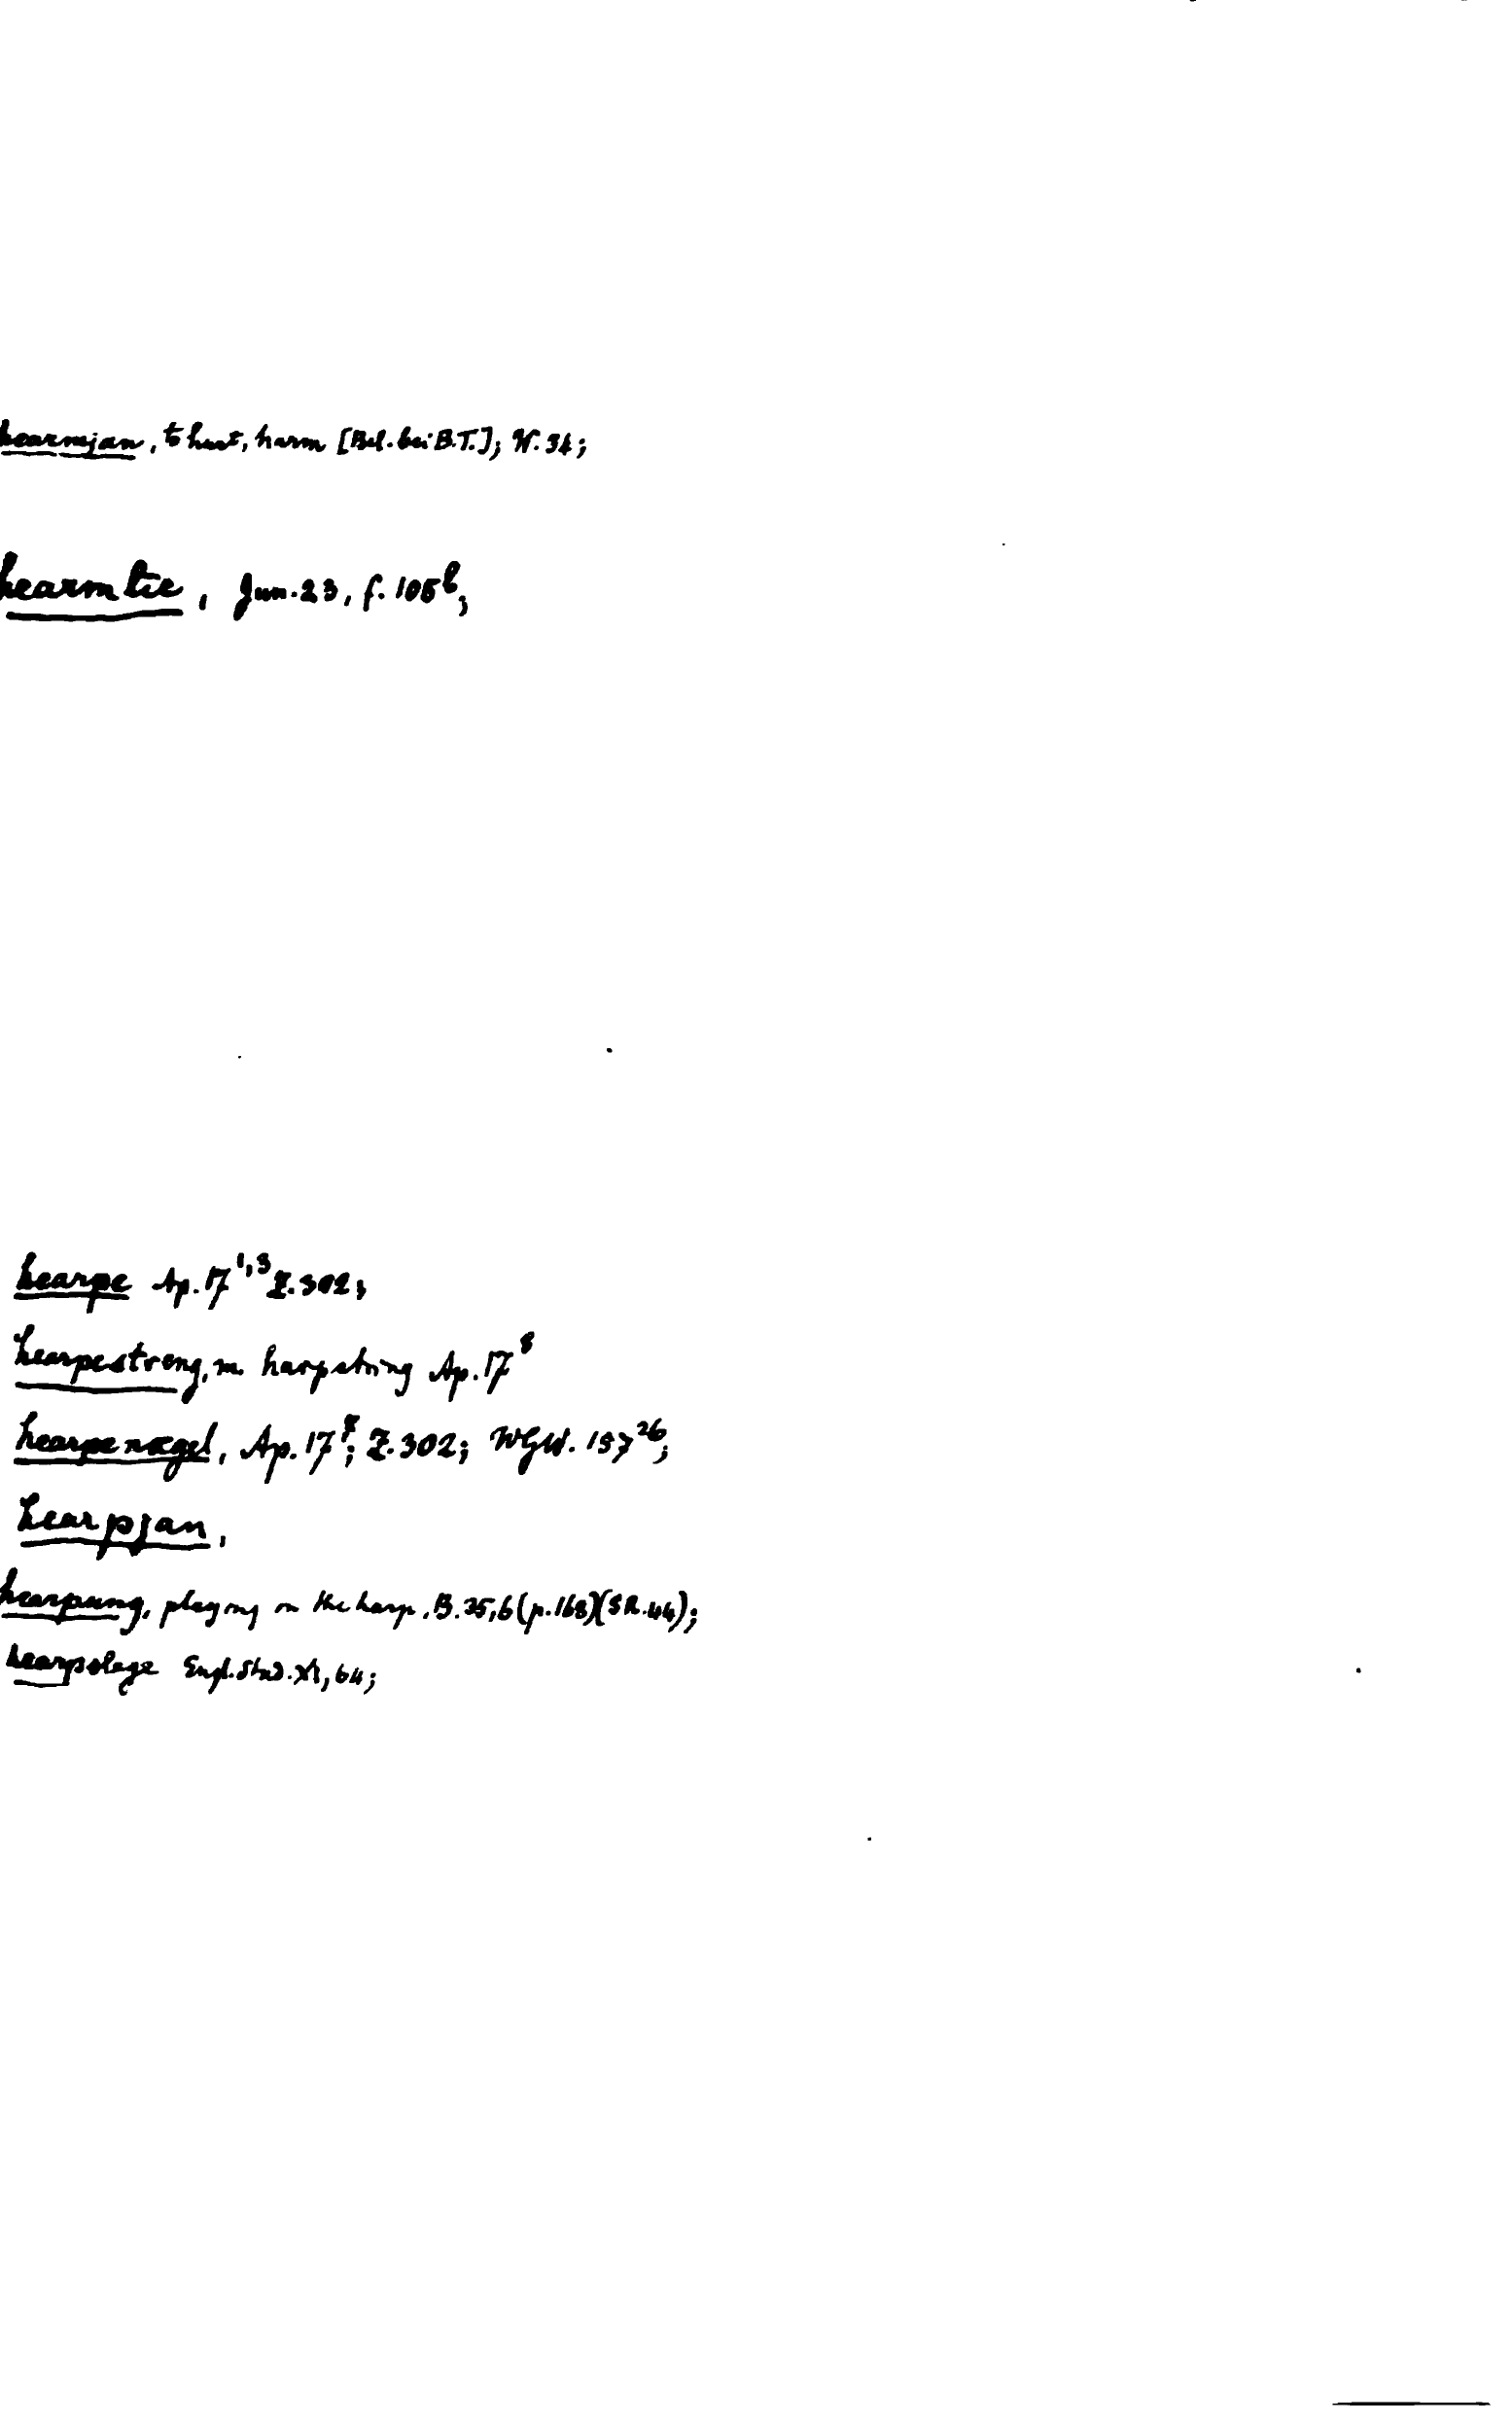 hearmjan, to hurt, harm [Bel. bei B.T.]; W. 34;
hearmtie, Jun. 23, f. 105b;
hearpe Ap. 17 1,3 Z. 302;
hearpestreng, m. harpstring Ap. 17 8
hearpenægel, Ap. 17 8; Z. 302; WGW. 157 26;
hearpjan,
hearpung, playing on the harp, B. 35,6 (p. 168) (SR. 44);
hearpslege Engl. Stud. XI, 64;